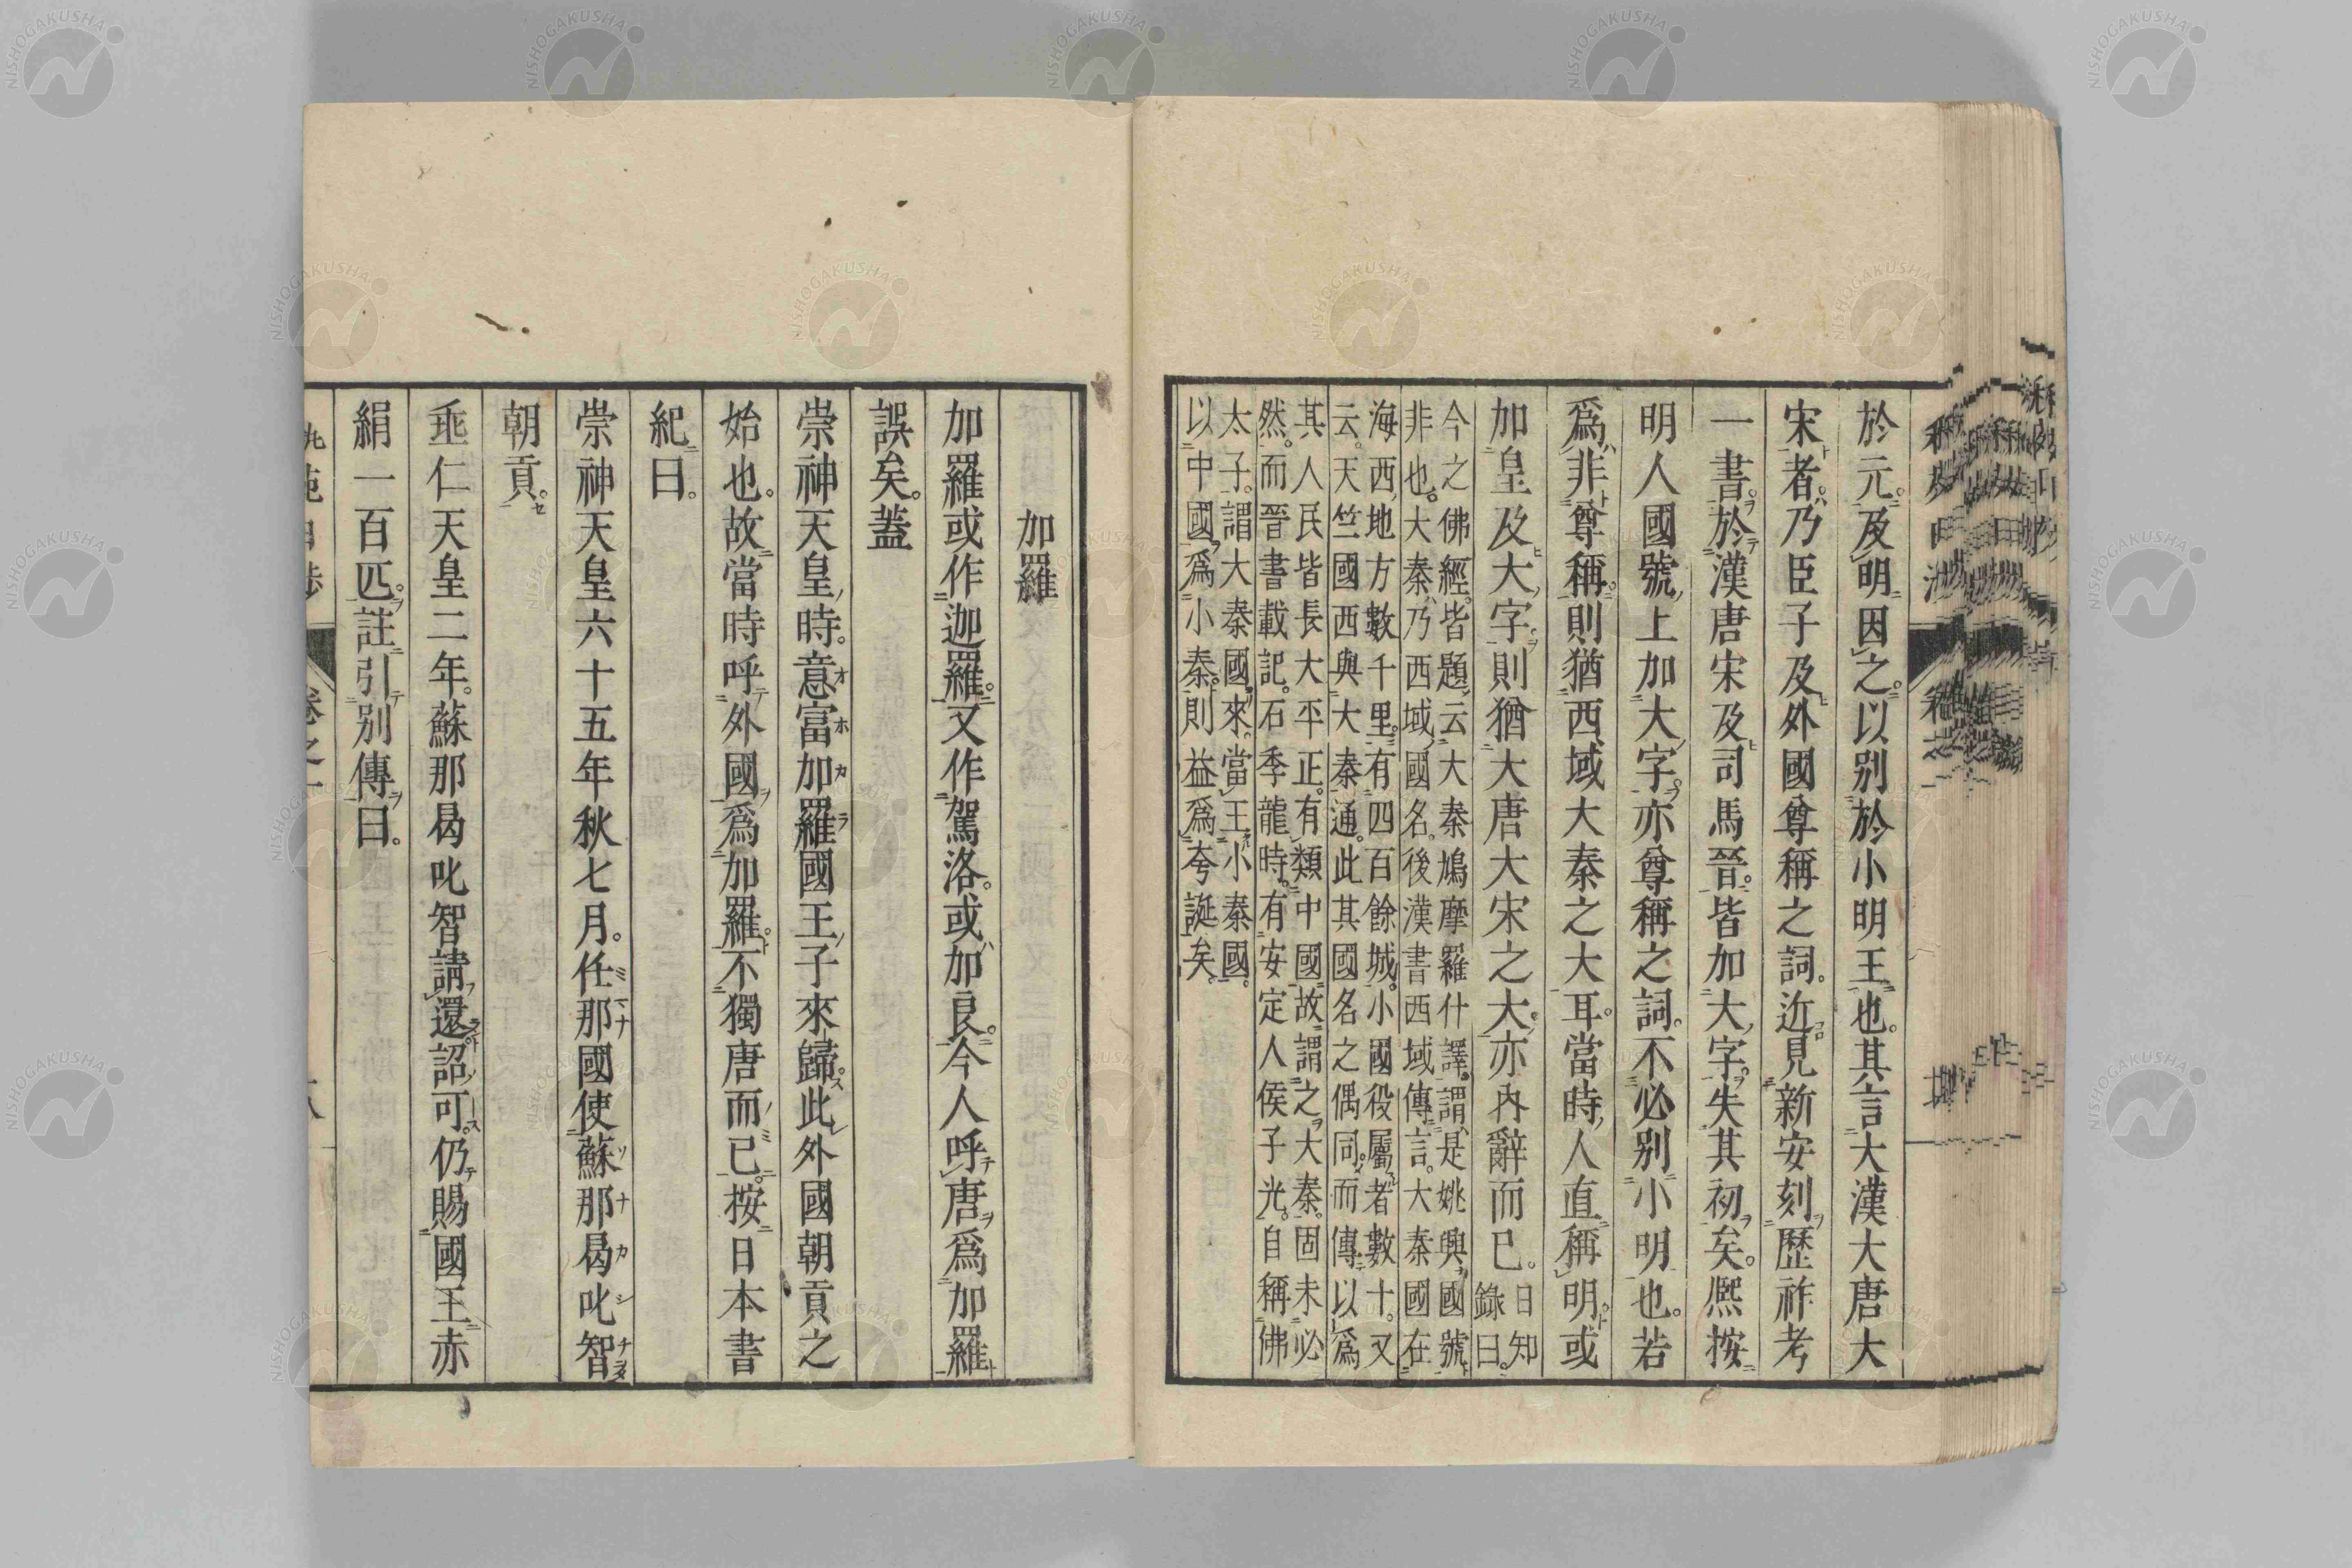 於元及明因之以別於小明王也其言大漢大唐大
宋者乃臣子及外國尊稱之詞近見新安刻歷祚考
一書於漢唐宋及司馬晉皆加大字失其初矣熈按
明人國號上加大字亦尊稱之詞不必別小明也若
爲非尊稱則猶西域大秦之大耳當時人直稱明或
加皇及大字則猶大唐大宋之大亦內辭而已
日知
錄曰
今之佛經皆題云大秦鳩摩羅什譯謂是姚興國號
非也大秦乃西域國名後漢書西域傳言大秦國在
海西地方數千里有四百餘城小國役屬者數十又
云天竺國西與大秦通此其國名之偶同而傳以爲
其人民皆長大平正有類中國故謂之大秦固未必
然而晉書載記石季龍時有安定人侯子光自稱佛
太子謂大秦國來當王小秦國
以中國爲小秦則益爲夸誕矣
加羅
加羅或作迦羅又作駕洛或加良今人呼唐爲加羅
誤矣蓋
崇神天皇時意富加羅國王子來歸此外國朝貢之
始也故當時呼外國爲加羅不獨唐而已按日本書
紀曰
崇神天皇六十五年秋七月任那國使蘇那曷叱智
朝貢
垂仁天皇二年蘇那曷叱智請還詔可仍賜國王赤
絹一百匹註引別傳曰
NISHOGAKUSHA